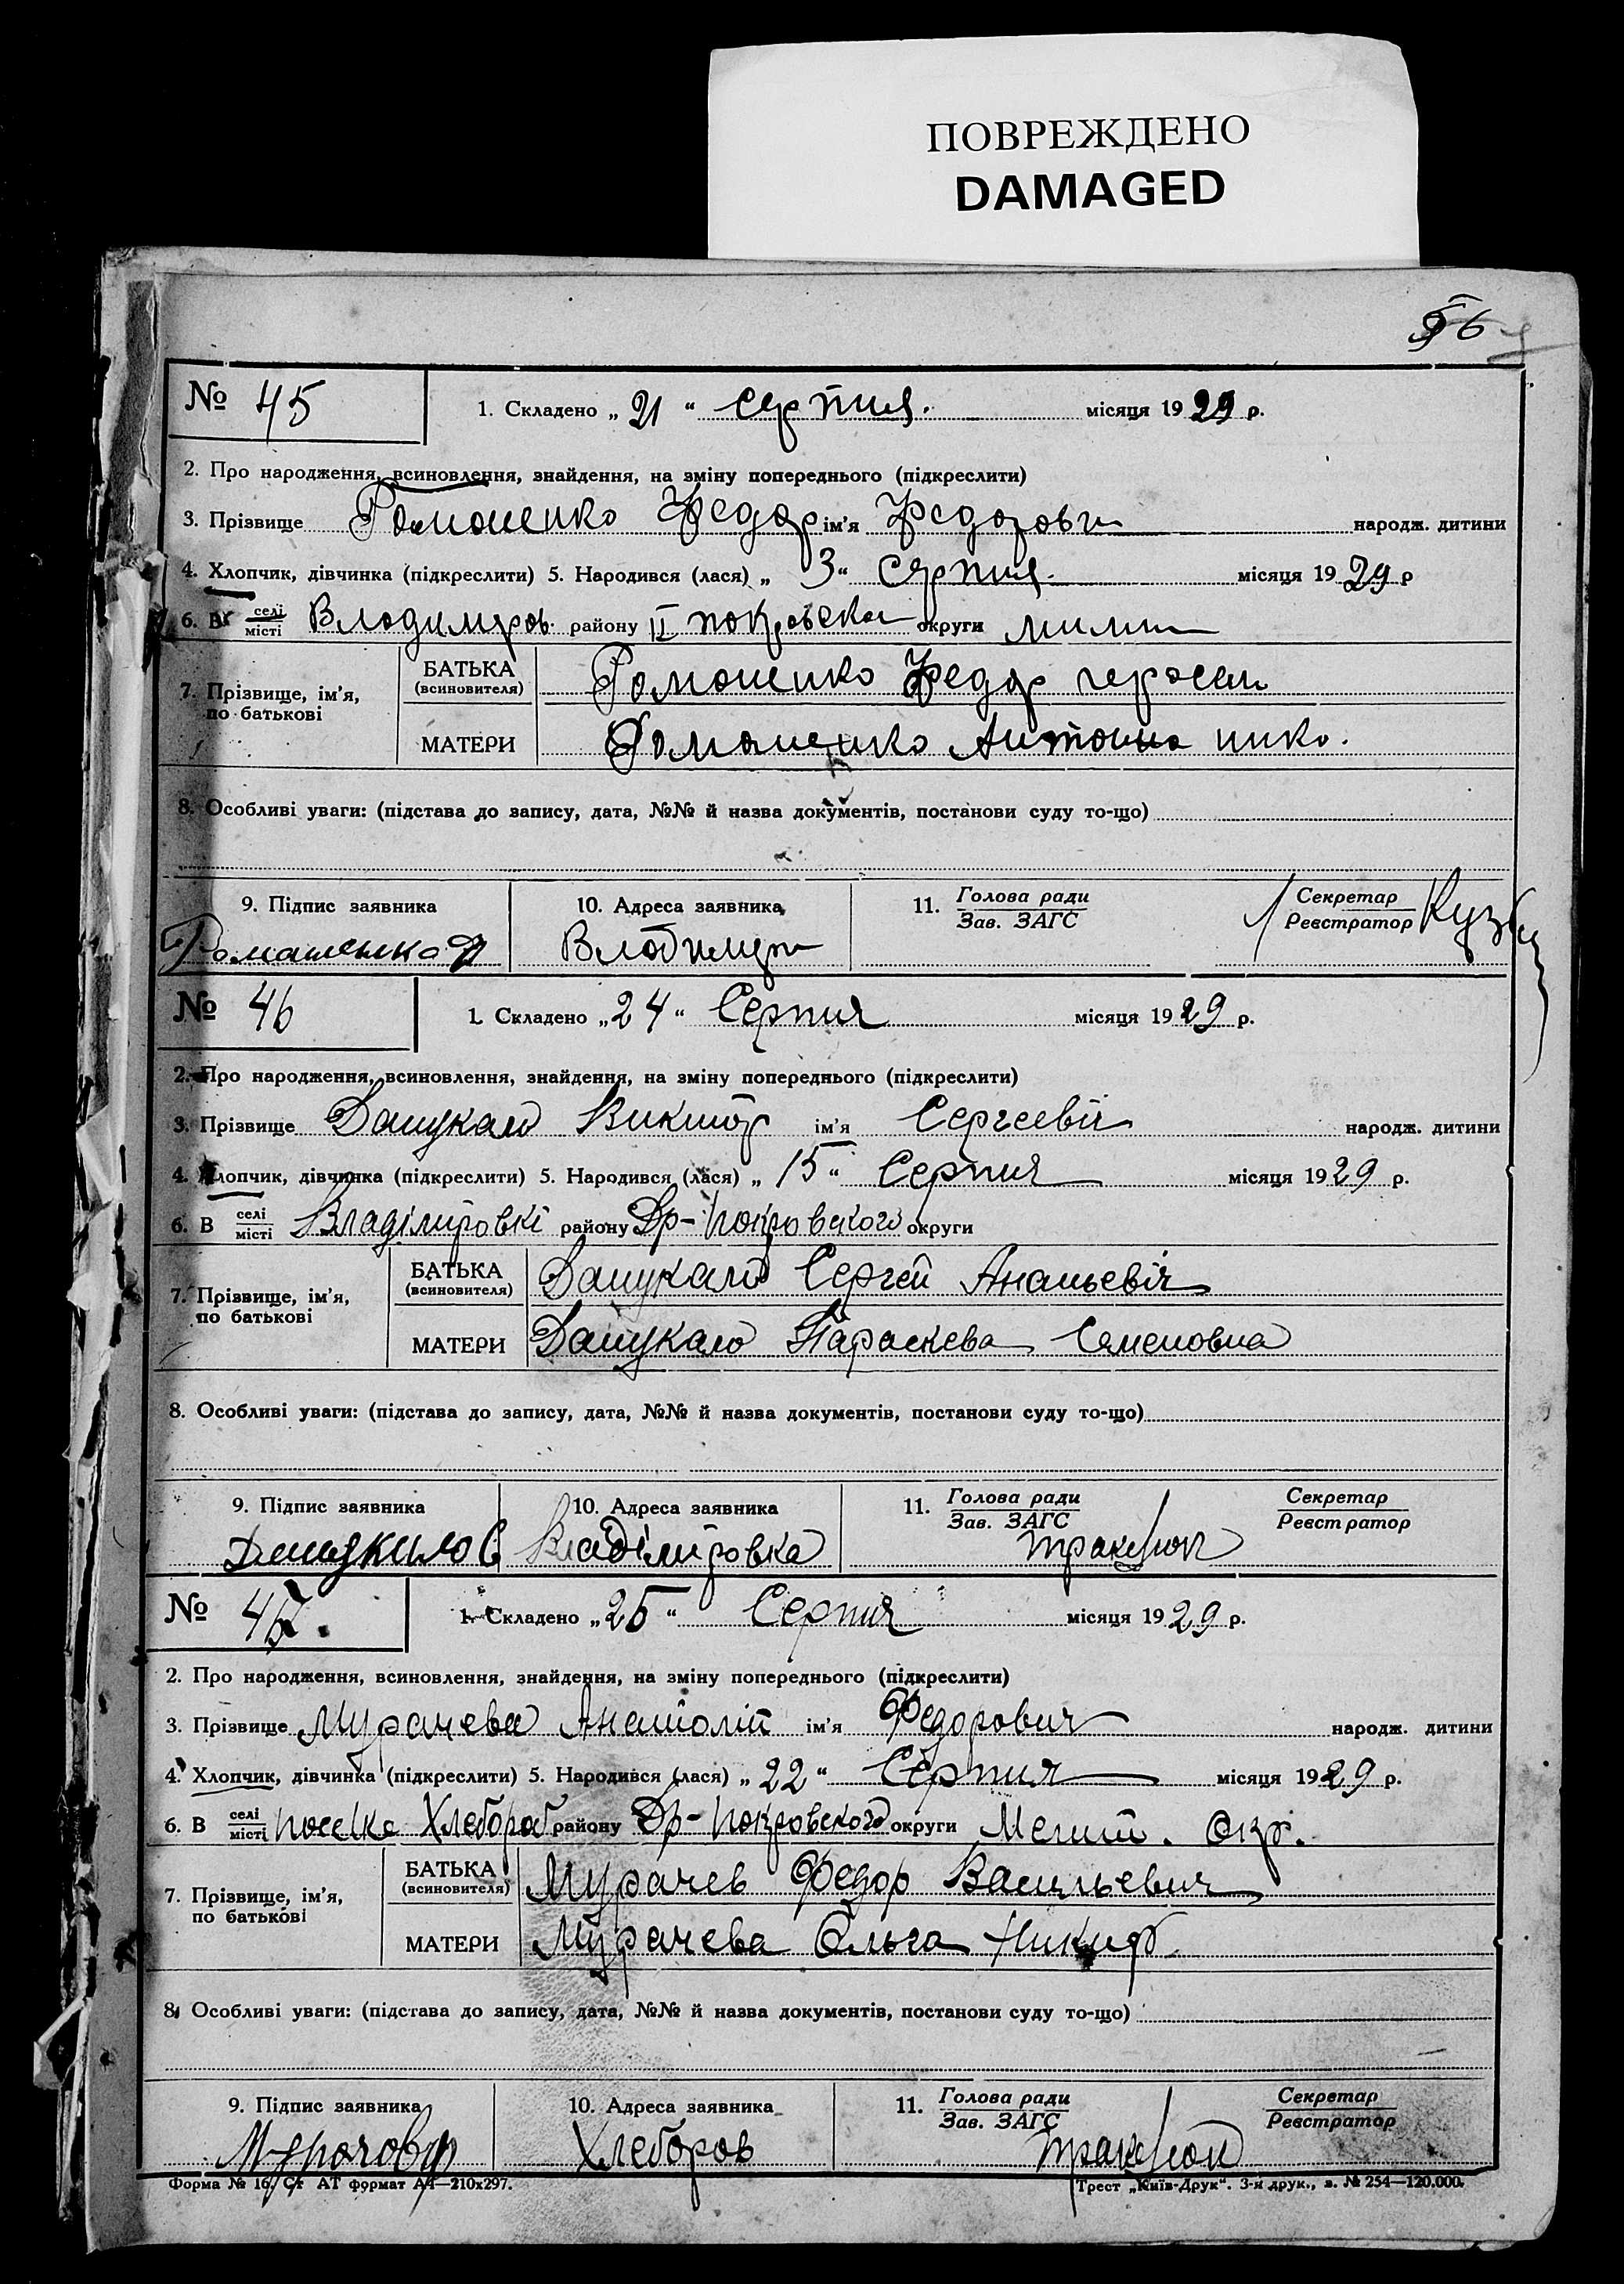 ПОВРЕЖДЕНО
DAMAGED
56
№ 45
1. Складено „ 21 “ серпня. місяця 1929 р.
2. Про народження, всиновлення, знайдення, на зміну попереднього (підкреслити)
3. Прізвище Романенко Федор ім'я Федорови народж. дитини
4. Хлопчик, дівчинка (підкреслити) 5. Народився (лася) „ 3 “ серпня. місяця 1929 р
6. В селі / місті Владимиров. району II покровска округи
7. Прізвище, ім'я, по батькові
БАТЬКА (всиновителя) Романенко Федор герасем
МАТЕРИ Романенко Антонина нико.
8. Особливі уваги: (підстава до запису, дата, №№ й назва документів, постанови суду то-що)
9. Підпис заявника 10. Адреса заявника 11. Голова ради / Зав. ЗАГС Секретар / Реєстратор
Романенко
№ 46
1. Складено „ 24 “ Серпня місяця 1929 р.
2. Про народження, всиновлення, знайдення, на зміну попереднього (підкреслити)
3. Прізвище Дашукало Виктор ім'я Сергеевіч народж. дитини
4. Хлопчик, дівчинка (підкреслити) 5. Народився (лася) „ 15 “ Серпня місяця 1929 р.
6. В селі / місті Владімировкі району Др-Покровского округи
7. Прізвище, ім'я, по батькові
БАТЬКА (всиновителя) Дашукало Сергей Ананьевіч
МАТЕРИ Дашукало Параскева Семеновна
8. Особливі уваги: (підстава до запису, дата, №№ й назва документів, постанови суду то-що)
9. Підпис заявника 10. Адреса заявника 11. Голова ради / Зав. ЗАГС Секретар / Реєстратор
Владімировка
№ 47.
1. Складено „ 25 “ Серпня місяця 1929 р.
2. Про народження, всиновлення, знайдення, на зміну попереднього (підкреслити)
3. Прізвище Мурачева Анатолій ім'я Федорович народж. дитини
4. Хлопчик, дівчинка (підкреслити) 5. Народився (лася) „ 22 “ Серпня місяця 1929 р.
6. В селі / місті Хлебороб району Др-Покровского округи Меліт. Окр.
7. Прізвище, ім'я, по батькові
БАТЬКА (всиновителя) Мурачев Федор Васильевич
МАТЕРИ Мурачева Ольга Никиф.
8. Особливі уваги: (підстава до запису, дата, №№ й назва документів, постанови суду то-що)
9. Підпис заявника 10. Адреса заявника 11. Голова ради / Зав. ЗАГС Секретар / Реєстратор
Хлеборов
Форма № 16. Ст АТ формат А4—210х297. Трест „Київ-Друк“. 3-я друк., з. № 254—120.000.